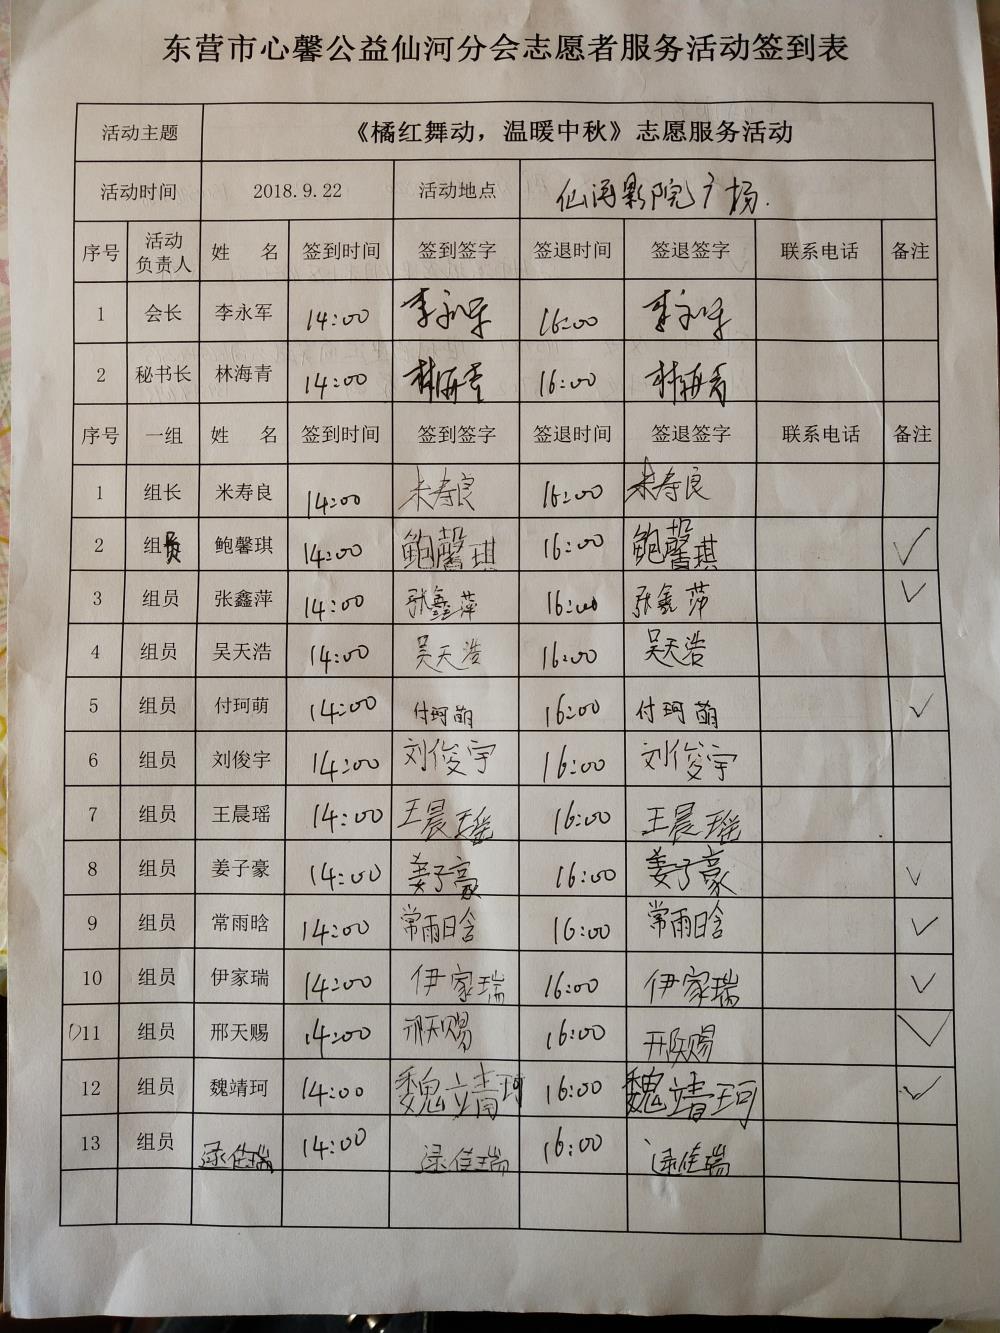 东营市心馨公益仙河分会志愿者服务活动签到表
活动主题 《橘红舞动，温暖中秋》志愿服务活动
活动时间 2018.9.22 活动地点 仙河影院广场.
序号 活动负责人 姓 名 签到时间 签到签字 签退时间 签退签字 联系电话 备注
1 会长 李永军 14:00 李永军 16:00 李永军
2 秘书长 林海青 14:00 林海青 16:00 林海青
序号 一组 姓 名 签到时间 签到签字 签退时间 签退签字 联系电话 备注
1 组长 米寿良 14:00 米寿良 16:00 米寿良
2 组员 鲍馨琪 14:00 鲍馨琪 16:00 鲍馨琪 ✓
3 组员 张鑫萍 14:00 张鑫萍 16:00 张鑫萍 ✓
4 组员 吴天浩 14:00 吴天浩 16:00 吴天浩
5 组员 付珂萌 14:00 付珂萌 16:00 付珂萌 ✓
6 组员 刘俊宇 14:00 刘俊宇 16:00 刘俊宇
7 组员 王晨瑶 14:00 王晨瑶 16:00 王晨瑶
8 组员 姜子豪 14:00 姜子豪 16:00 姜子豪 ✓
9 组员 常雨晗 14:00 常雨晗 16:00 常雨晗 ✓
10 组员 伊家瑞 14:00 伊家瑞 16:00 伊家瑞 ✓
11 组员 邢天赐 14:00 邢天赐 16:00 ✓
12 组员 魏靖珂 14:00 魏靖珂 16:00 魏靖珂 ✓
13 组员 14:00 16:00